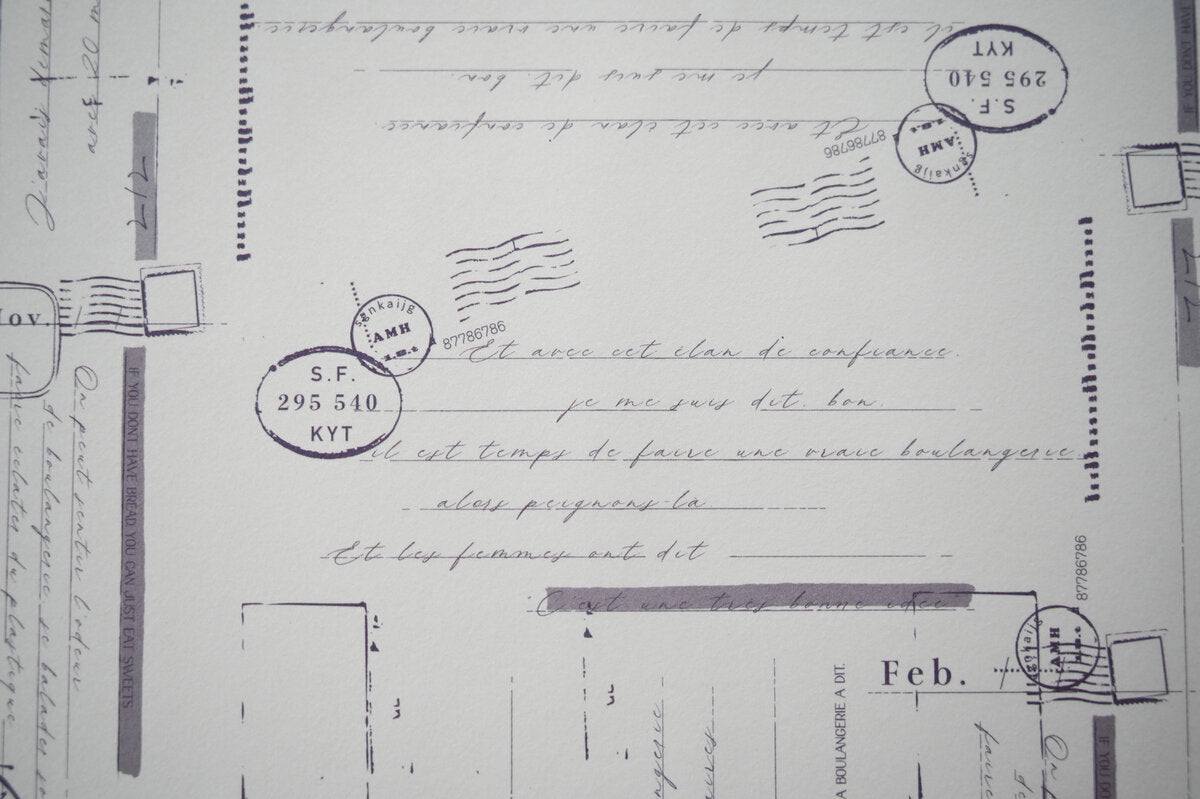 S.F.
295 540
KYT
AMH
87786786
Et avec cet élan de confiance.
je me suis dit. bon.
il est temps de faire une vraie boulangerie.
alors peignons-la
Et les femmes ont dit
C'est une très bonne idée
Feb.
AMH
87786786
A BOULANGERIE A DIT.
IF YOU DONT HAVE BREAD YOU CAN JUST EAT SWEETS
On peut sentir l'odeur
de boulangerie se balader
faire eclater du plastique
212
il est temps de faire une vraie boulangerie
je me suis dit. bon.
Et avec cet élan de confiance.
S.F.
295 540
KYT
AMH
87786786
IF YOU DONT HAVE
212